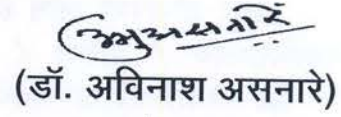 (डॉ. अविनाश असनारे)